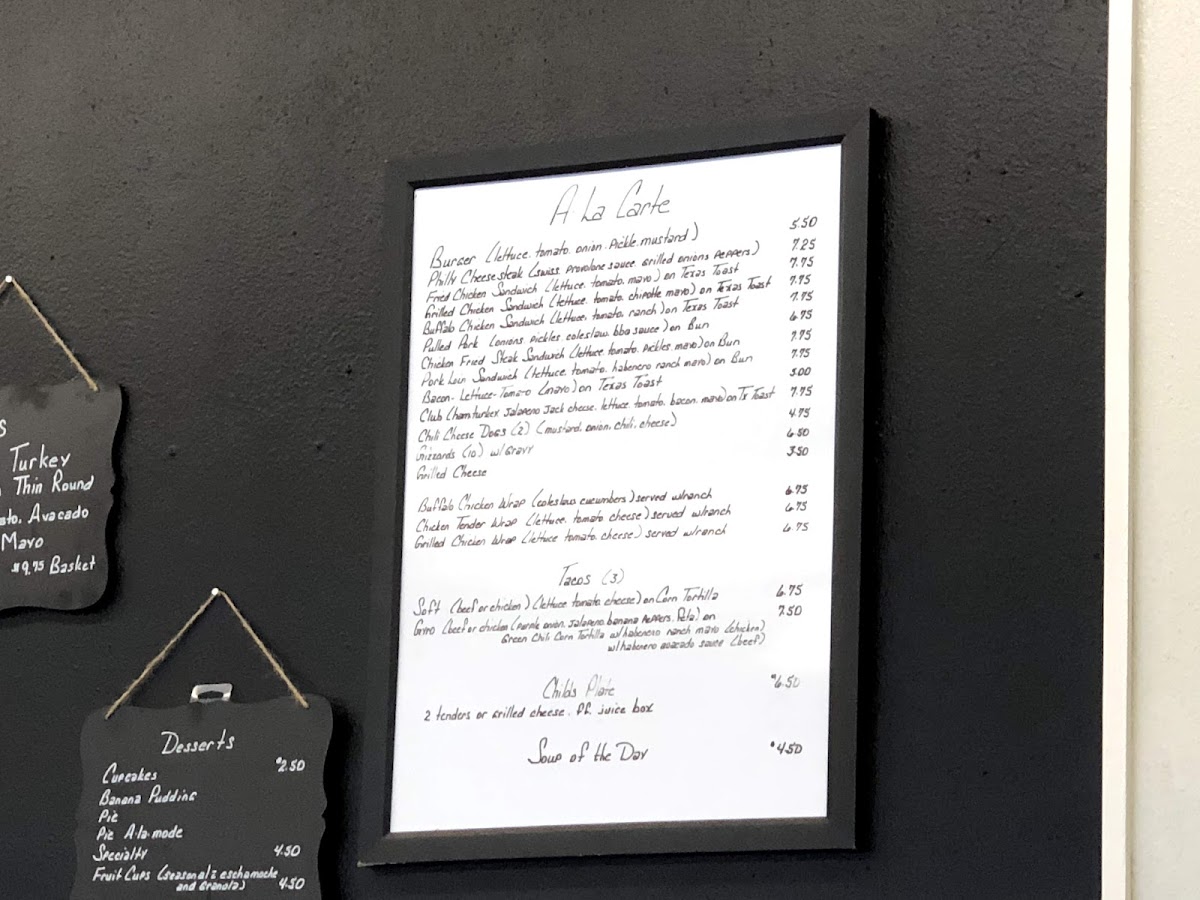 A La Carte
Burger (lettuce, tomato, onion, pickle, mustard) 5.50
Philly Cheese steak (swiss, provolone sauce, grilled onions peppers) 7.25
Fried Chicken Sandwich (lettuce, tomato, mayo) on Texas Toast 7.75
Grilled Chicken Sandwich (lettuce, tomato, chipotle mayo) on Texas Toast 7.75
Buffalo Chicken Sandwich (lettuce, tomato, ranch) on Texas Toast 7.75
Pulled Pork (onions, pickles, coleslaw, bbq sauce) on Bun 6.75
Chicken Fried Steak Sandwich (lettuce, tomato, pickles, mayo) on Bun 7.75
Pork Loin Sandwich (lettuce, tomato, habenero ranch mayo) on Bun 7.75
Bacon-Lettuce-Tomato (mayo) on Texas Toast 5.00
Club (ham, turkey, jalapeno jack cheese, lettuce, tomato, bacon, mayo) on Tx Toast 7.75
Chili Cheese Dogs (2) (mustard, onion, chili, cheese) 4.75
Gizzards (10) w/ Gravy 6.50
Grilled Cheese 3.50
Buffalo Chicken Wrap (coleslaw, cucumbers) served w/ranch 6.75
Chicken Tender Wrap (lettuce, tomato, cheese) served w/ranch 6.75
Grilled Chicken Wrap (lettuce, tomato, cheese) served w/ranch 6.75
Tacos (3)
Soft (beef or chicken) (lettuce, tomato, cheese) on Corn Tortilla 6.75
Gyro (beef or chicken (purple onion, jalapeno, banana peppers, feta) on 7.50
Green Chili Corn Tortilla w/habenero ranch mayo (chicken)
w/habenero avacado sauce (beef)
Childs Plate $6.50
2 tenders or grilled cheese, ff, juice box
Soup of the Day $4.50
s
Turkey
Thin Round
ato, Avacado
Mayo
$9.75 Basket
Desserts
Cupcakes $2.50
Banana Pudding
Pie
Pie A-la-mode
Specialty 4.50
Fruit Cups (seasonal
and Granola) 4.50